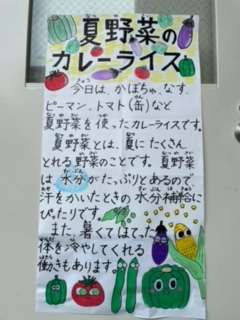 夏野菜の
カレーライス
今日は、かぼちゃ、なす、
ピーマン、トマト(缶)など
夏野菜を使ったカレーライスです。
夏野菜とは、夏にたくさん
とれる野菜のことです。夏野菜
は水分がたっぷりとあるので、
汗をかいたときの水分補給に
ぴったりです。
また、暑くてほてった
体を冷やしてくれる
働きもあります。